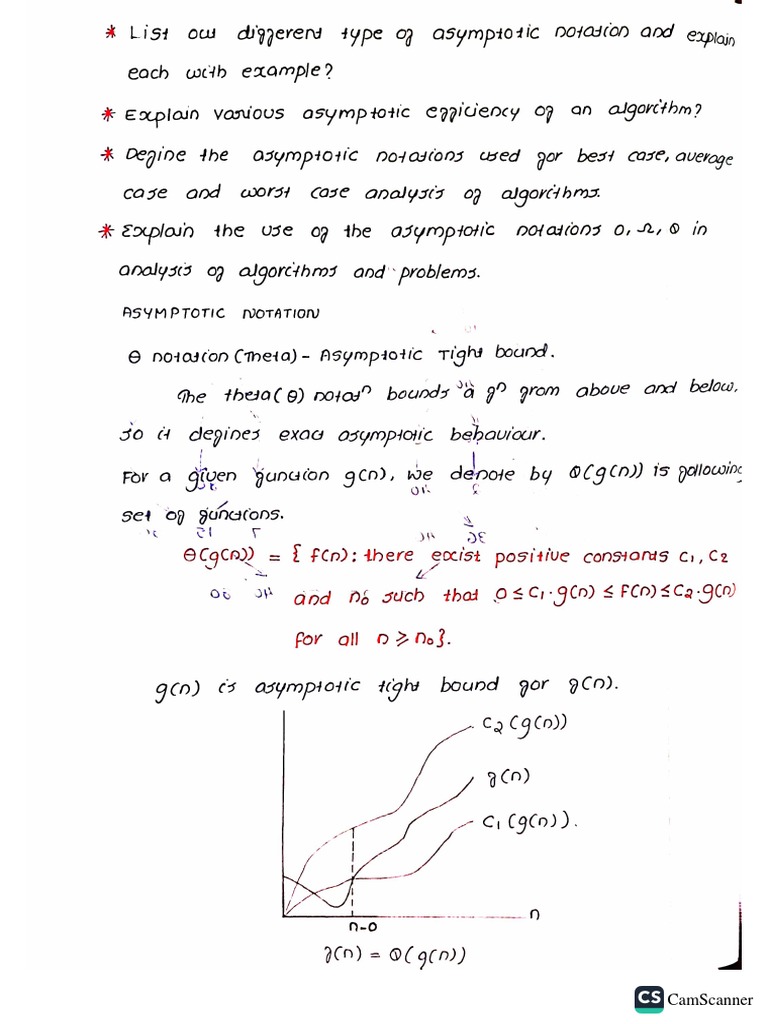 * List out different type of asymptotic notation and explain
each with example?
* Explain various asymptotic efficiency of an algorithm?
* Define the asymptotic notations used for best case, average
case and worst case analysis of algorithms.
* Explain the use of the asymptotic notations O, Ω, Θ in
analysis of algorithms and problems.
ASYMPTOTIC NOTATION
Θ notation (Theta) - Asymptotic Tight bound.
The theta(Θ) notatⁿ bounds a fⁿ from above and below,
so it defines exact asymptotic behaviour.
For a given function g(n), we denote by Θ(g(n)) is following
set of functions.
Θ(g(n)) = { f(n): there exist positive constants c1, c2
and n₀ such that 0 ≤ c1·g(n) ≤ f(n) ≤ c2·g(n)
for all n ≥ n₀}.
g(n) is asymptotic tight bound for f(n).
c2(g(n))
f(n)
c1(g(n)).
n
n-0
f(n) = Θ(g(n))
CS CamScanner